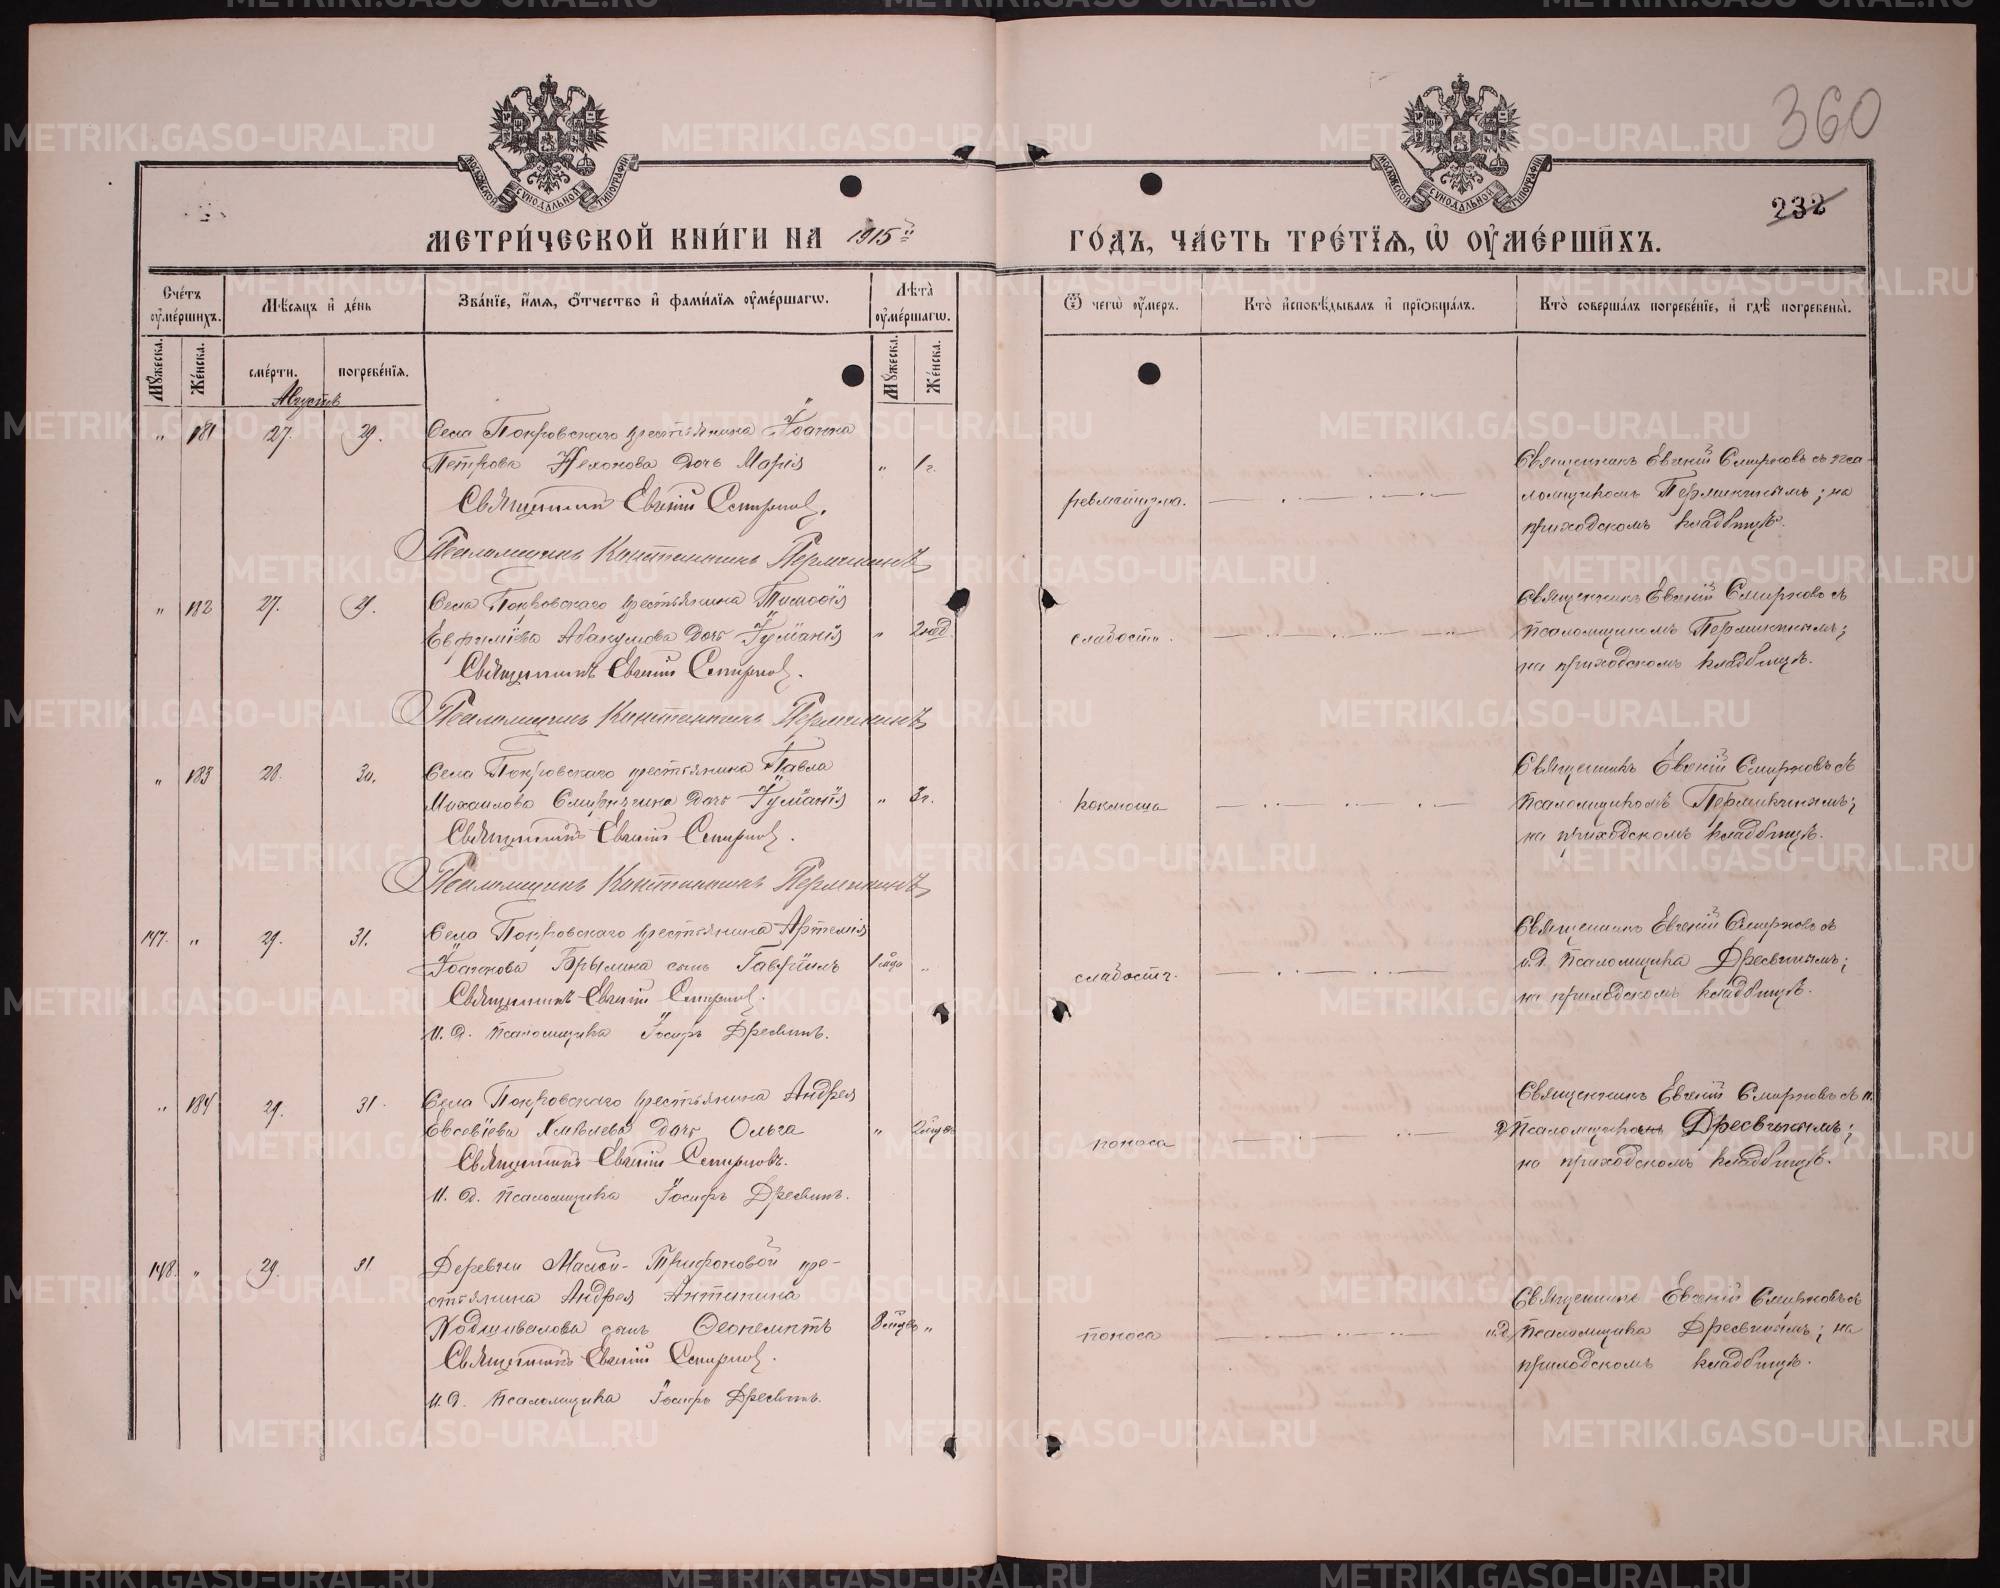 360
232
МОСКОВСКОЙ СѴНОДАЛЬНОЙ ТИПОГРАФІИ
МОСКОВСКОЙ СѴНОДАЛЬНОЙ ТИПОГРАФІИ
МЕТРИ́ЧЕСКОЙ КНИ́ГИ НА 1915й
ГО́ДЪ, ЧА́СТЬ ТРЕ́ТІѦ, Ѡ҆ ОУ҆МЕ́РШИХЪ.
Счéтъ оу҆мéршихъ.
Мѣ́сяцъ и҆ дéнь
Звáніе, и҆́мя, ѻ҆́тчество и҆ фамилія оу҆мéршагѡ.
Лѣ́та оу҆мéршагѡ.
Ѿ чегѡ̀ оу҆́меръ.
Ктò и҆сповѣ́дывалъ и҆ прїѡбщáлъ.
Ктò совершáлъ погребéніе, и҆ гдѣ̀ погребены̀.
Мꙋ́жеска.
Жéнска.
смéрти.
погребéнія.
Мꙋ́жеска.
Жéнска.
Августъ
" 181 27. 29. Села Покровскаго крестьянина Іоанна
Петрова Нехонова дочь Марія " 1 г.
Священникъ Евгеній Смирновъ.
Псаломщикъ Константинъ Пермикинъ
ревматизма.
Священникъ Евгеній Смирновъ съ пса-
ломщикомъ Пермикинымъ; на
приходскомъ кладбищѣ.
" 182 27. 29. Села Покровскаго крестьянина Тимоѳія
Евфиміева Абакумова дочь Іуліанія " 2 нед.
Священникъ Евгеній Смирновъ.
Псаломщикъ Константинъ Пермикинъ
слабости.
Священникъ Евгеній Смирновъ съ
псаломщикомъ Пермикинымъ;
на приходскомъ кладбищѣ.
" 183 28. 30. Села Покровскаго крестьянина Павла
Михаилова Смирнягина дочь Іуліанія " 3 г.
Священникъ Евгеній Смирновъ.
Псаломщикъ Константинъ Пермикинъ
коклюша
Священникъ Евгеній Смирновъ съ
псаломщикомъ Пермикинымъ;
на приходскомъ кладбищѣ.
147. " 29. 31. Села Покровскаго крестьянина Артемія
Іоаннова Брылина сынъ Гавріилъ "
Священникъ Евгеній Смирновъ.
И. д. псаломщика Іосифъ Дресвинъ.
слабости.
Священникъ Евгеній Смирновъ съ
и.д. псаломщика Дресвинымъ;
на приходскомъ кладбищѣ.
" 184 29. 31. Села Покровскаго крестьянина Андрея
Евсевіева Хмѣлева дочь Ольга "
Священникъ Евгеній Смирновъ.
И. д. псаломщика Іосифъ Дресвинъ.
поноса
Священникъ Евгеній Смирновъ съ и.
д. псаломщикомъ Дресвинымъ;
на приходскомъ кладбищѣ.
148. " 29. 31. Деревни Малой-Трифоновой кре-
стьянина Андрея Антипина
Кодшивалова сынъ Ѳеопемптъ 8 мцевъ "
Священникъ Евгеній Смирновъ.
И. д. псаломщика Іосифъ Дресвинъ.
поноса
Священникъ Евгеній Смирновъ съ
и.д. псаломщика Дресвинымъ; на
приходскомъ кладбищѣ.
METRIKI.GASO-URAL.RU